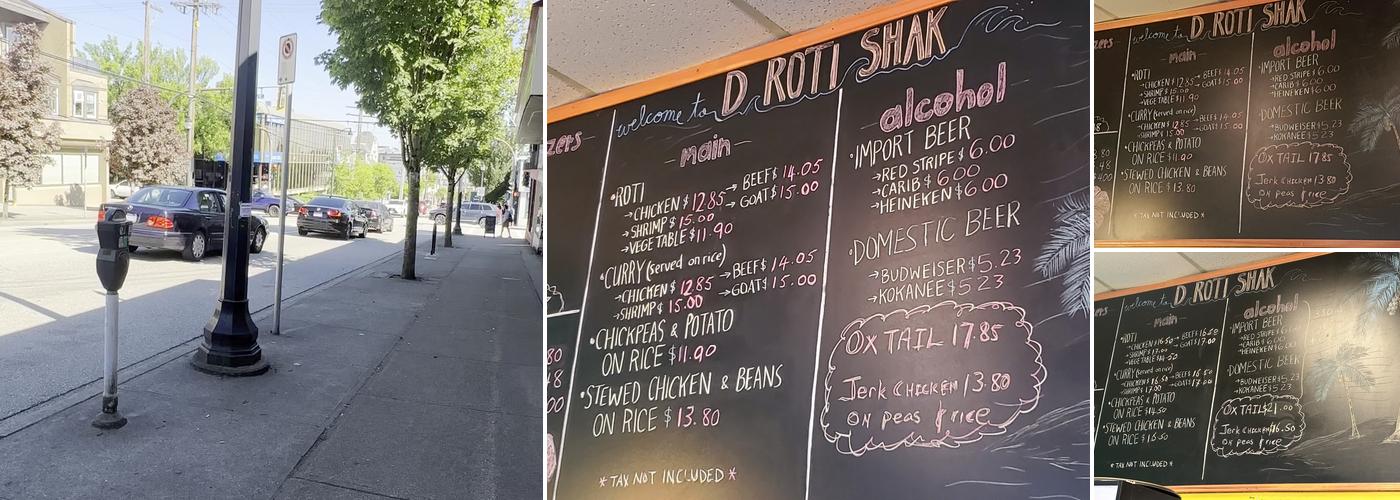 welcome to D ROTI SHAK
zers
main
• ROTI
→ CHICKEN $ 12.85 → BEEF $ 14.05
→ SHRIMP $ 15.00 → GOAT $ 15.00
→ VEGETABLE $ 11.90
• CURRY (served on rice)
→ CHICKEN $ 12.85 → BEEF $ 14.05
→ SHRIMP $ 15.00 → GOAT $ 15.00
• CHICKPEAS & POTATO
ON RICE $ 11.90
• STEWED CHICKEN & BEANS
ON RICE $ 13.80
* TAX NOT INCLUDED *
alcohol
• IMPORT BEER
→ RED STRIPE $ 6.00
→ CARIB $ 6.00
→ HEINEKEN $ 6.00
• DOMESTIC BEER
→ BUDWEISER $ 5.23
→ KOKANEE $ 5.23
OX TAIL 17.85
Jerk CHICKEN 13.80
ON peas & rice
welcome to D ROTI SHAK
zers
main
• ROTI
→ CHICKEN $ 12.85 → BEEF $ 14.05
→ SHRIMP $ 15.00 → GOAT $ 15.00
→ VEGETABLE $ 11.90
• CURRY (served on rice)
→ CHICKEN $ 12.85 → BEEF $ 14.05
→ SHRIMP $ 15.00 → GOAT $ 15.00
• CHICKPEAS & POTATO
ON RICE $ 11.90
• STEWED CHICKEN & BEANS
ON RICE $ 13.80
* TAX NOT INCLUDED *
alcohol
• IMPORT BEER
→ RED STRIPE $ 6.00
→ CARIB $ 6.00
→ HEINEKEN $ 6.00
• DOMESTIC BEER
→ BUDWEISER $ 5.23
→ KOKANEE $ 5.23
OX TAIL 17.85
Jerk CHICKEN 13.80
ON peas & rice
welcome to D ROTI SHAK
main
• ROTI
→ CHICKEN $ 16.50 → BEEF $ 16.50
→ SHRIMP $ 17.00 → GOAT $ 17.00
→ VEGETABLE $ 14.50
• CURRY (served on rice)
→ CHICKEN $ 16.50 → BEEF $ 16.50
→ SHRIMP $ 17.00 → GOAT $ 17.00
• CHICKPEAS & POTATO
ON RICE $ 14.50
• STEWED CHICKEN & BEANS
ON RICE $ 16.50
* TAX NOT INCLUDED *
alcohol
• IMPORT BEER
→ RED STRIPE $ 6.00
→ CARIB $ 6.00
→ HEINEKEN $ 6.00
• DOMESTIC BEER
→ BUDWEISER $ 5.23
→ KOKANEE $ 5.23
OX TAIL $21.00
Jerk CHICKEN $16.50
ON peas & rice